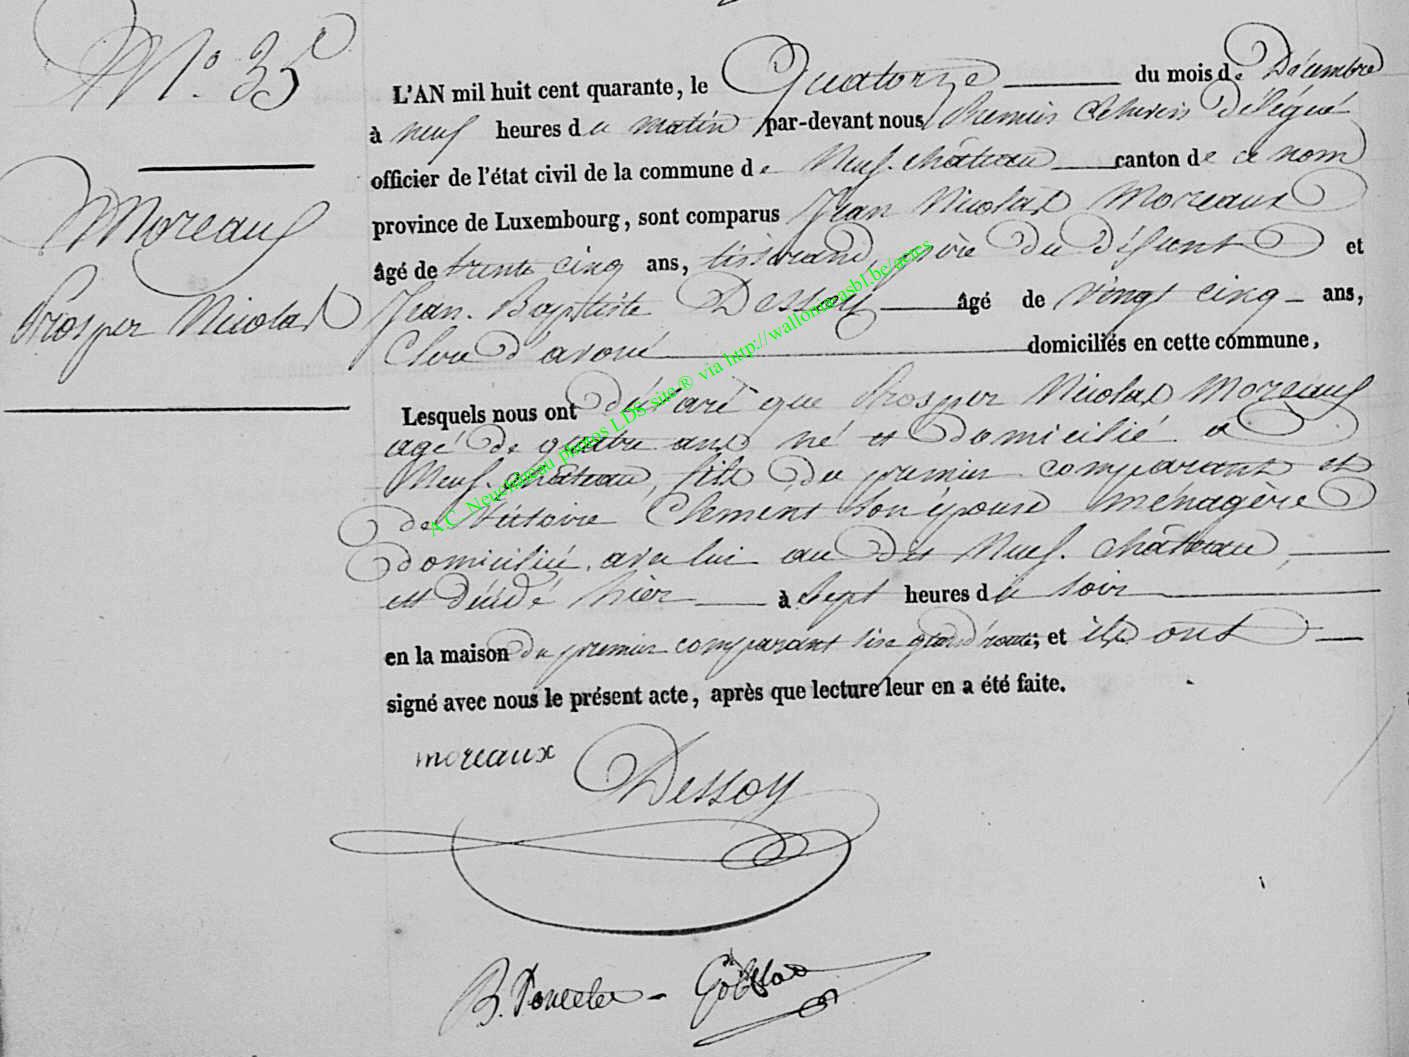 N.° 35
Moreaux
Prosper Nicolas
L'AN mil huit cent quarante, le Quatorze du mois de Décembre
à neuf heures du matin par-devant nous Premier Echevin délégué
officier de l'état civil de la commune de Neuf-château canton de ce nom
province de Luxembourg, sont comparus Jean Nicolas Moreaux
âgé de trente cinq ans, tisserand, père du défunt et
Jean-Baptiste Dessoy âgé de vingt cinq ans,
Clerc d'avoué domiciliés en cette commune,
Lesquels nous ont déclaré que Prosper Nicolas Moreaux
agé de quatre ans né et domicilié à
Neuf-château, fils du premier comparant et
de Victoire Clement son épouse ménagère
domiciliée avec lui au dit Neuf-château,
est décédé hier à sept heures du soir
en la maison du premier comparant sise grand'route; et ils ont
signé avec nous le présent acte, après que lecture leur en a été faite.
moreaux
Dessoy
B. Poncelet
A.C. Neufchâteau photos LDS site ® via http://wallonia.asbl.be/actes